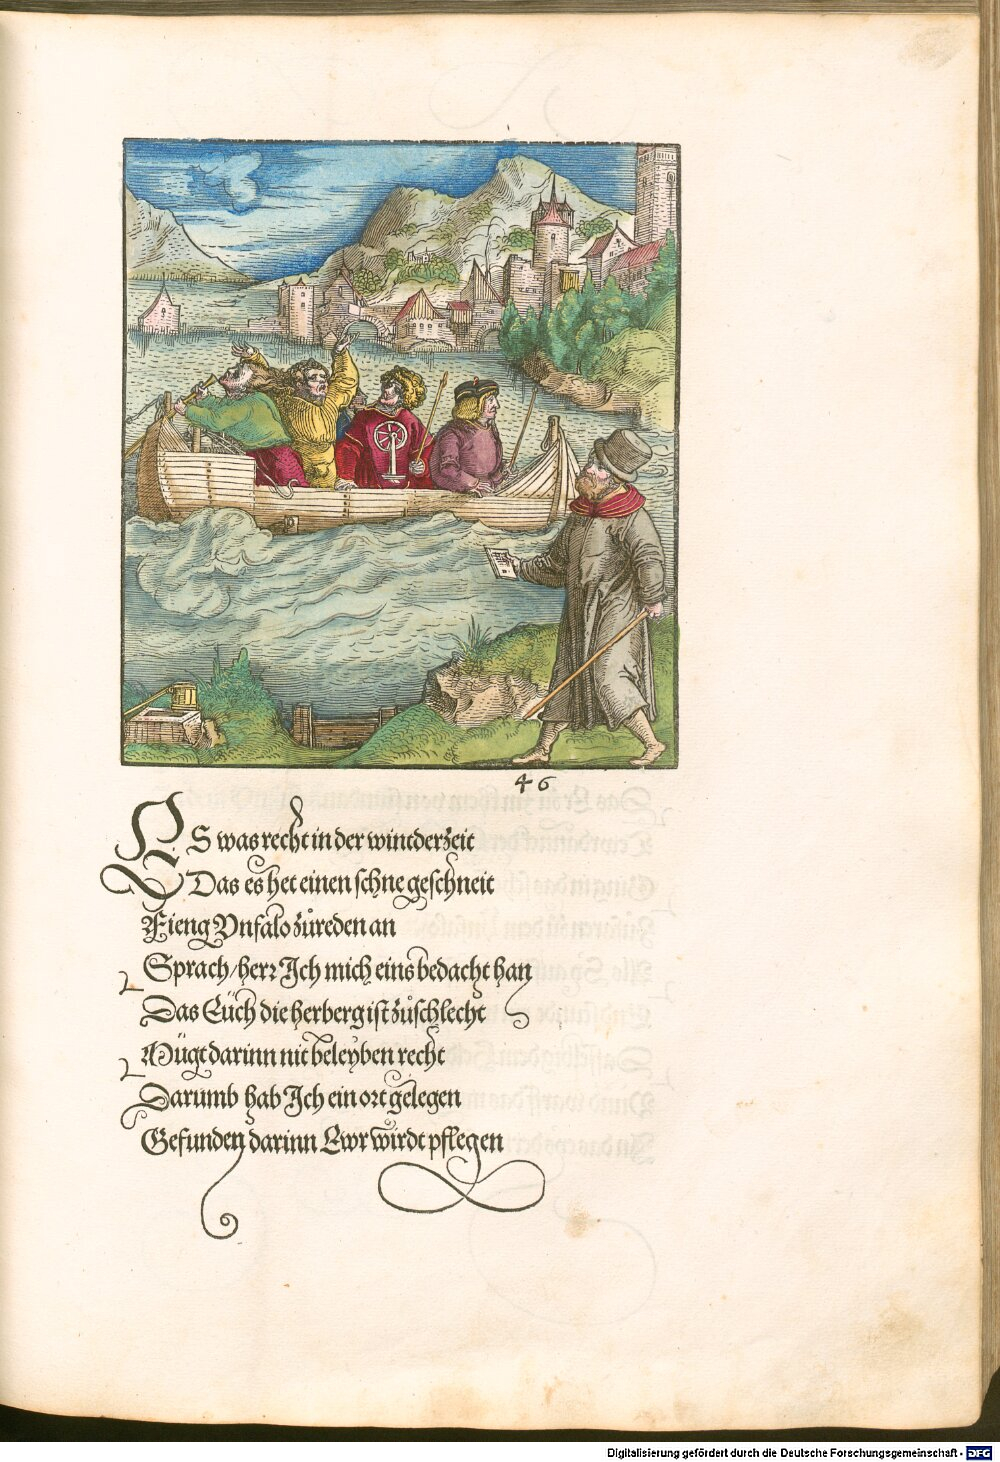 46
ES was recht in der wintderzeit
Das es het einen schne geschneit
Fieng Vnfalo zůreden an
Sprach/herr Ich mich eins bedacht han
Das Eüch die herberg ist zůschlecht
Mügt darinn nit beleyben recht
Darumb hab Ich ein ort gelegen
Gefunden darinn Ewr wirdt pflegen
Digitalisierung gefördert durch die Deutsche Forschungsgemeinschaft - DFG